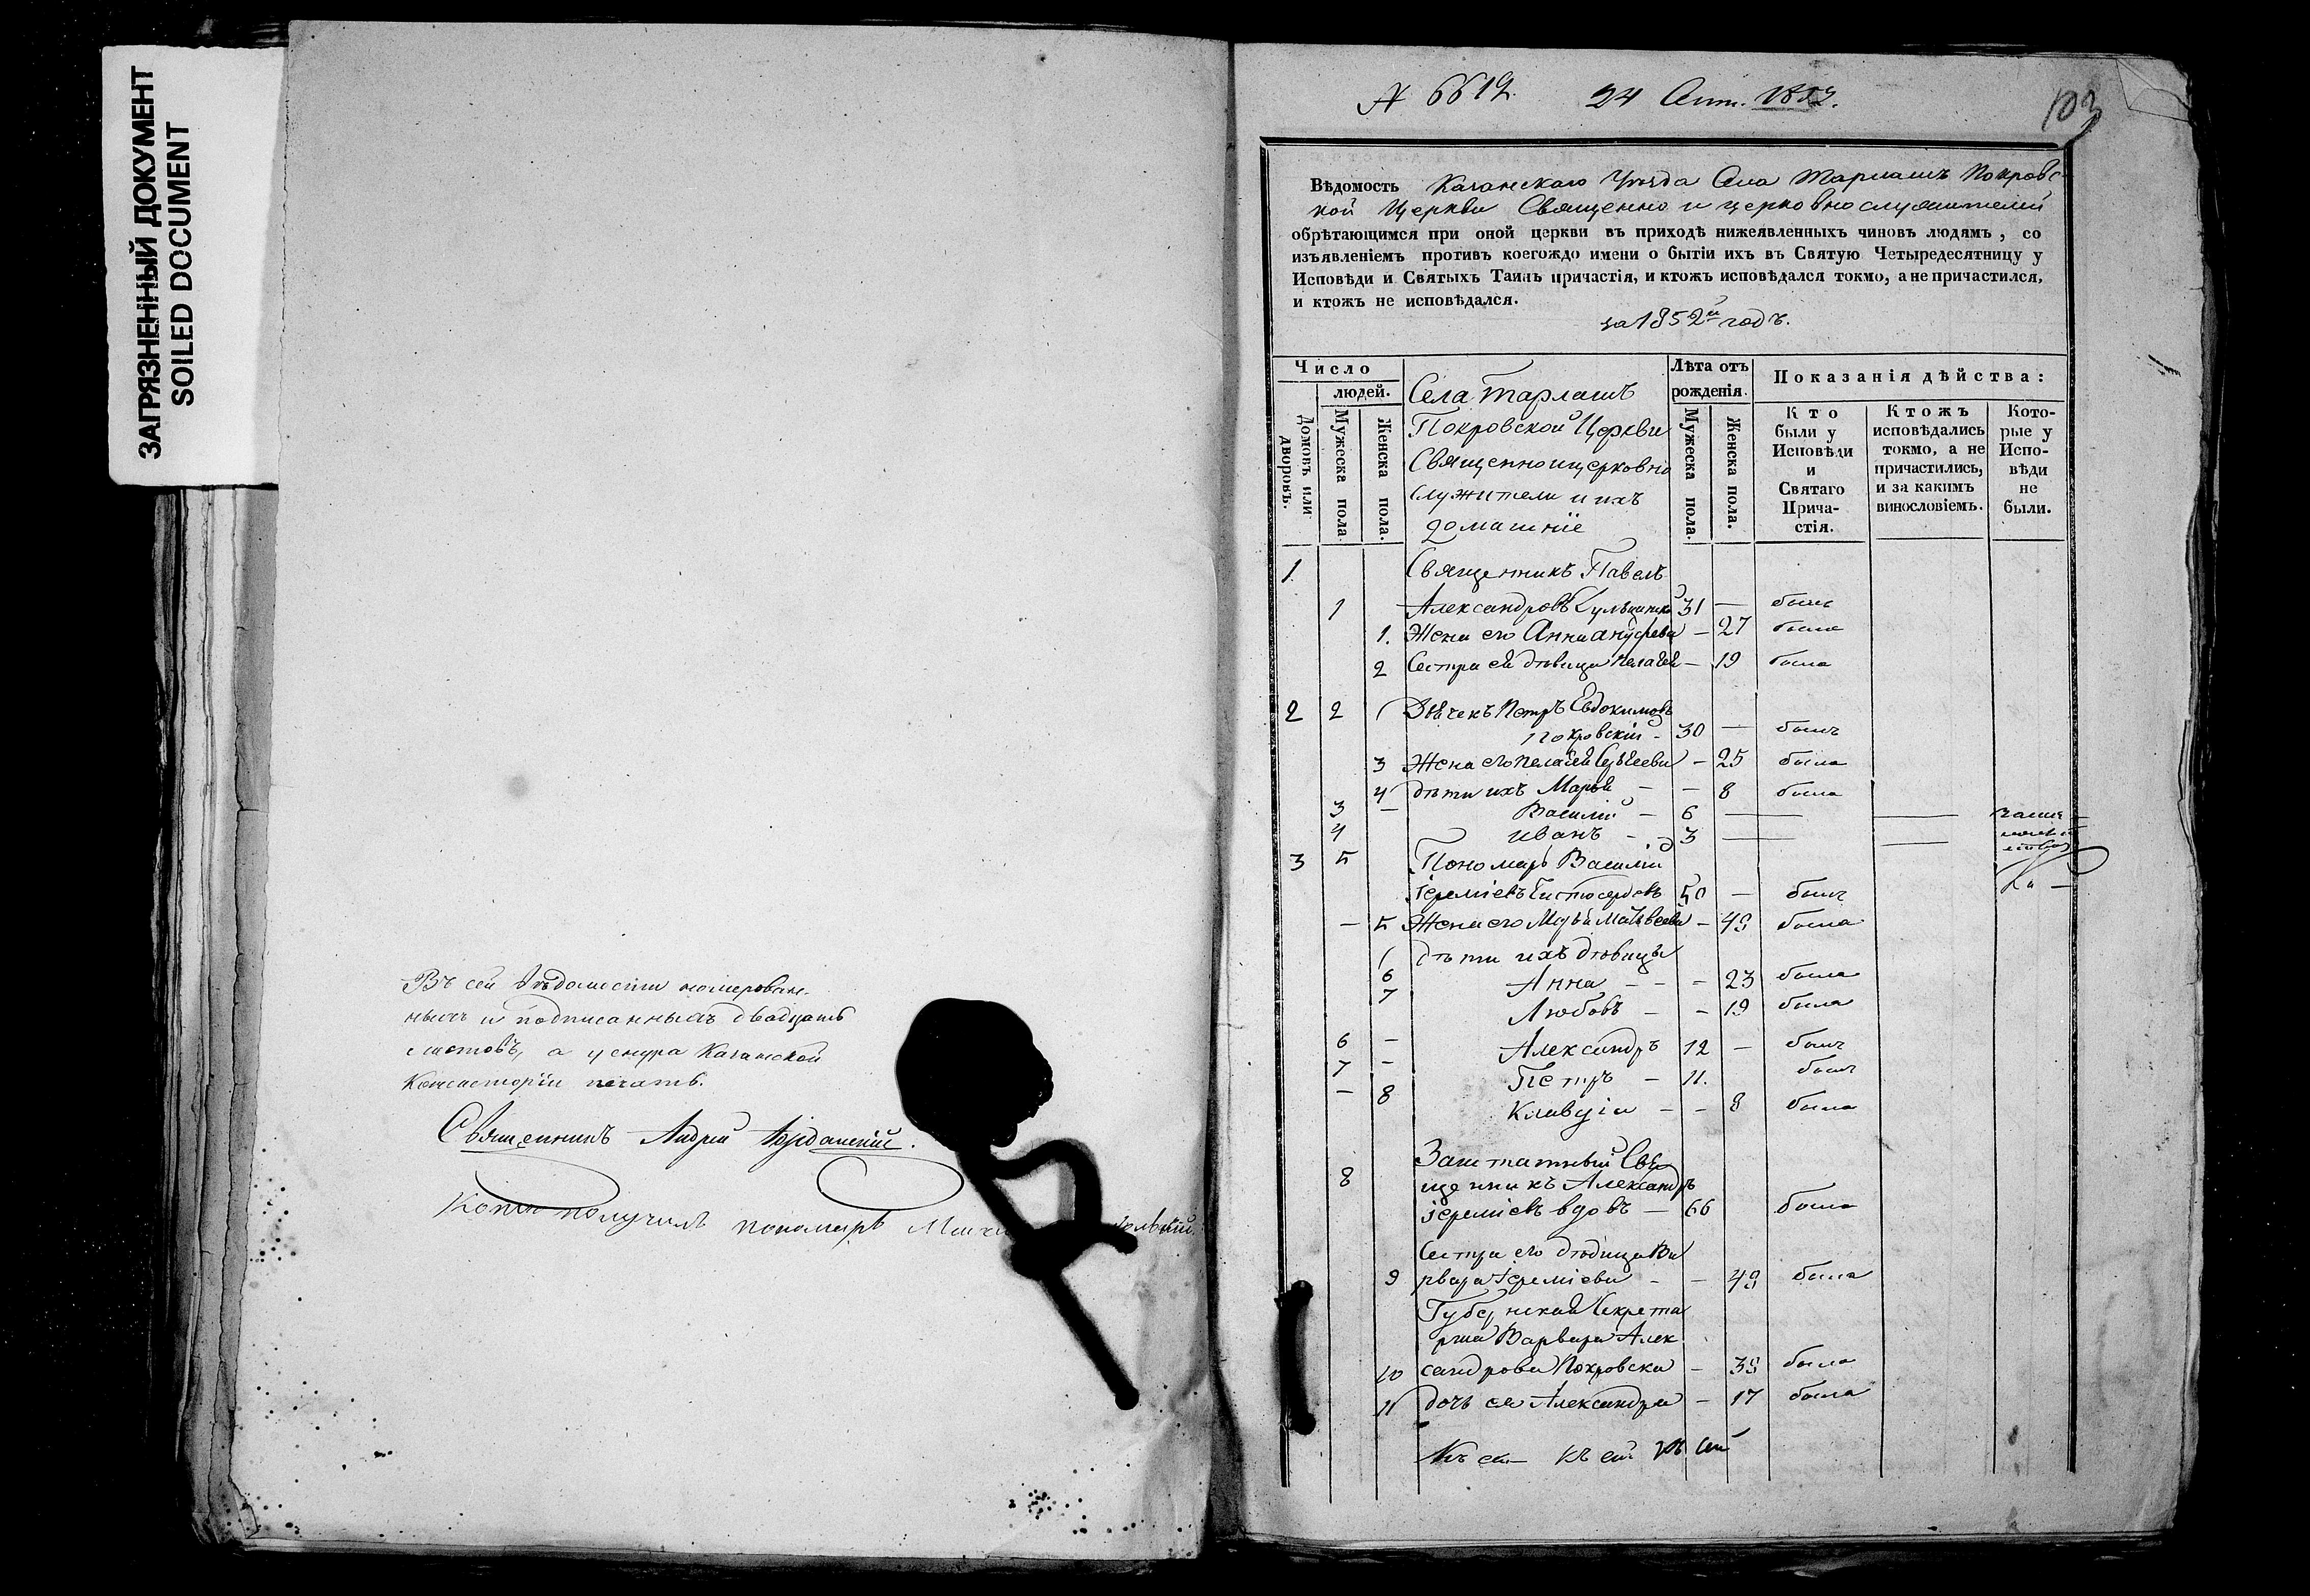 ЗАГРЯЗНЕННЫЙ ДОКУМЕНТ
SOILED DOCUMENT
Въ сей вѣдомости номерован-
ныхъ и подписанныхъ двадцать
листовъ, а у снура Казанской
Консисторіи печать.
Священникъ Андрей
Копію получилъ пономарь
N 6612. 24 1852.
103
Вѣдомость Казанскаго Уѣзда Села Тарлашъ Покровс-
кой Церкви Священно и церковнослужителей
обрѣтающимся при оной церкви въ приходѣ нижеявленныхъ чиновъ людямъ, со
изъявленіемъ противъ коегождо имени о бытіи ихъ въ Святую Четыредесятницу у
Исповѣди и Святыхъ Таинъ причастія, и ктожъ исповѣдался токмо, а не причастился,
и ктожъ не исповѣдался.
за 1852й годъ.
Число
людей.
Домовъ или дворовъ.
Мужеска пола
Женска пола.
Села Тарлашъ
Покровской Церкви
Священноицерковно
служители и ихъ
домашніе
Лѣта отъ
рожденія.
Мужеска пола.
Женска пола.
Показанія дѣйства:
Кто
были у
Исповѣди
и
Святаго
Прича-
стія.
Ктожъ
исповѣдались
токмо, а не
причастились,
и за какимъ
винословіемъ.
Кото-
рые у
Испо-
вѣди
не
были.
1. Священникъ Павелъ
1 Александровъ 31 — былъ
1. Жена его Анна Андреева — 27 была
2 Сестра ея дѣвица Пелагея — 19 была
2 2 Дьячекъ Петръ Евдокимовъ
Покровскій — 30 — былъ
3 Жена его Пелагея — 25 была
4 дѣти ихъ Марья — — 8 была
3 — Василій — 6 — —
4 Иванъ — — 3 — —
3 5 Пономарь Василій
Іереміевъ Чистосердовъ 50 — былъ
— 5 Жена его Марья Матвеева — 49 была
дѣти ихъ дѣвицы
6 Анна — — — 23 была
7 Любовь — — 19 была
6 — Александръ 12 — былъ
7 — Петръ — 11. былъ
— 8 Клавдія — — 8 была
Заштатный Свя
8 щенникъ Александръ
Іереміевъ вдовъ — 66 была
Сестра его дѣвица Ва
9 рвара Іереміева — — 49 была
Губернская Секрета
рша Варвара Алек
10 сандрова Покровска — 39 была
11 дочь ея Александра — 17 была